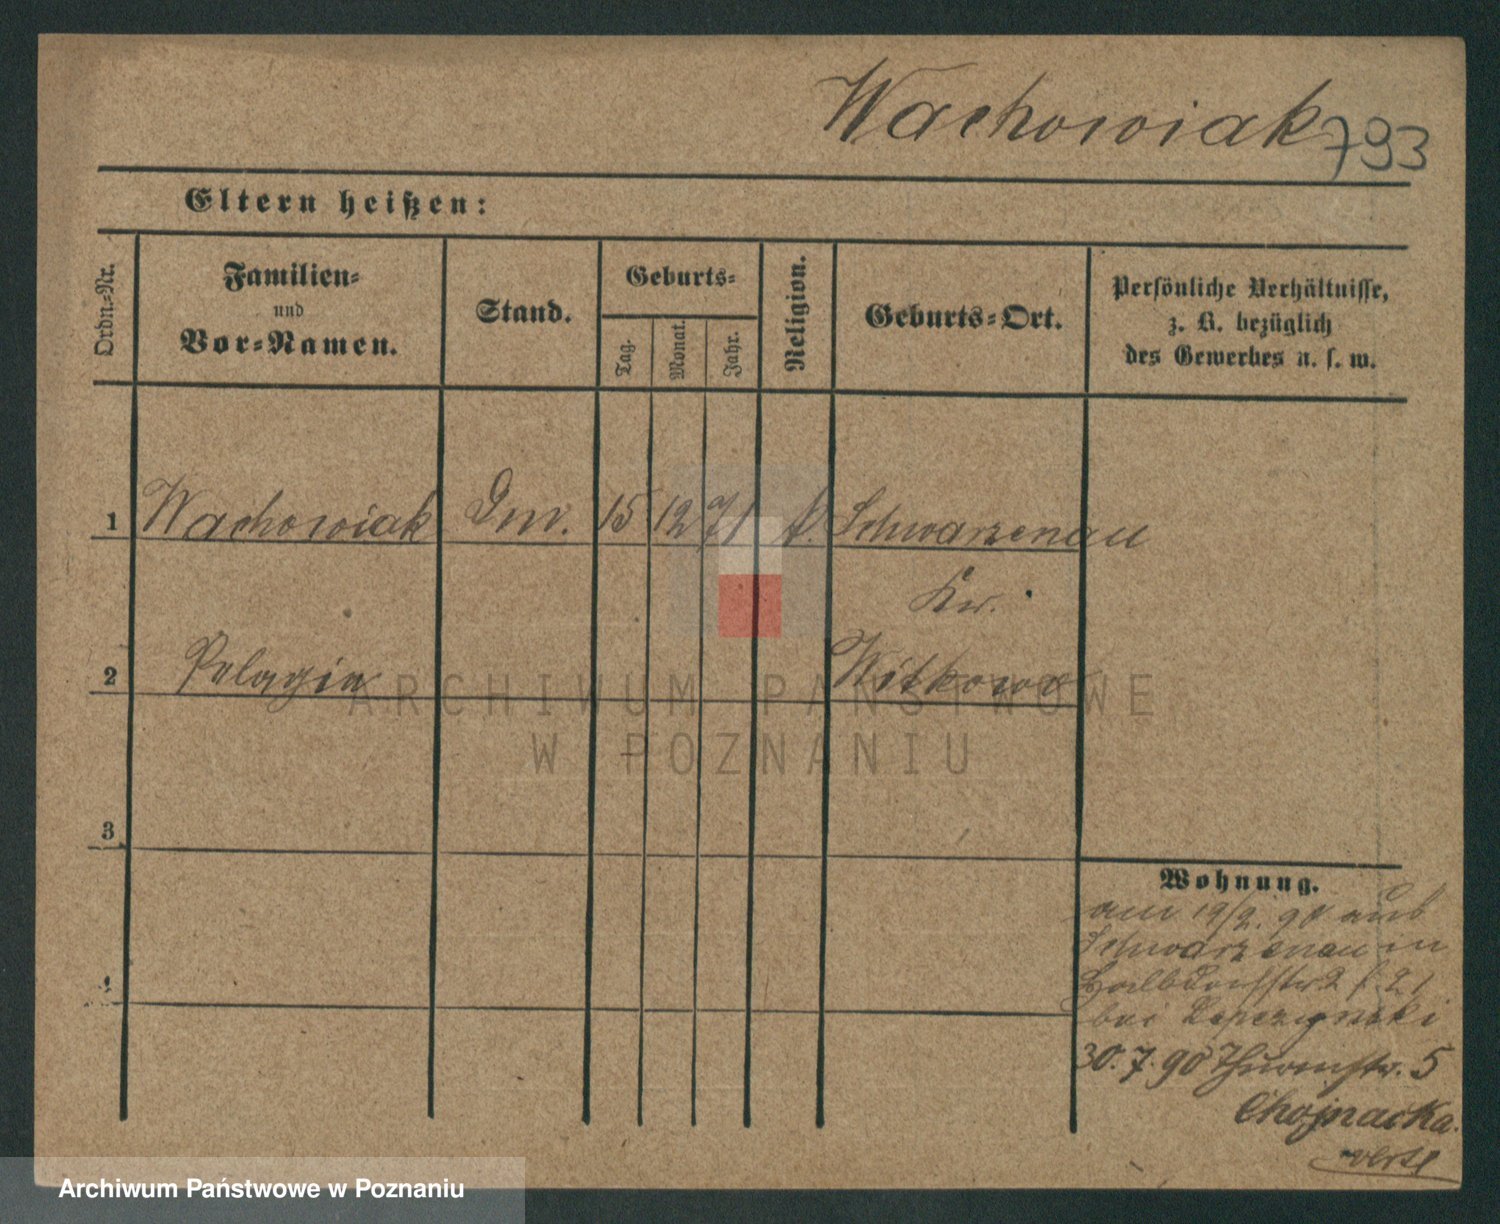 Wachowiak 793
Eltern heißen:
Ordn.=Nr.
Familien=
und
Vor=Namen.
Stand.
Geburts=
Tag.
Monat.
Jahr.
Religion.
Geburts=Ort.
Persönliche Verhältnisse,
z. B. bezüglich
des Gewerbes u. s. w.
1 Wachowiak 15 12 71 k. Schwarzenau
Kr.
2 Pelagia Witkowo
ARCHIWUM PAŃSTWOWE
W POZNANIU
3
4
Wohnung.
am 19/2. 90 aus
Schwarzenau in
Halbdorfstr. 21
bei
30. 7. 90 Thurmstr. 5
Chojnacka.
verte
Archiwum Państwowe w Poznaniu